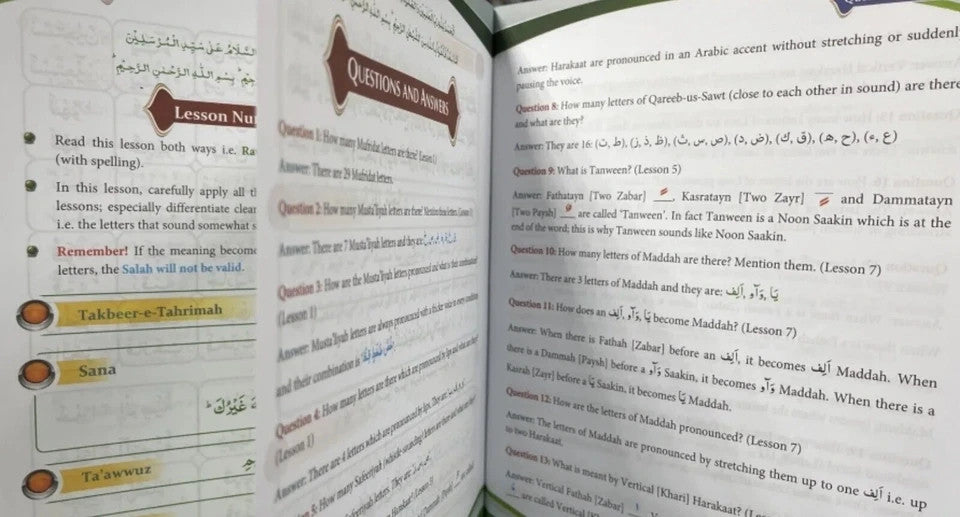 السَّلَامُ عَلٰى سَيِّدِ الْمُرْسَلِيْنَ
بِسْمِ اللّٰهِ الرَّحْمٰنِ الرَّحِيْمِ
Lesson Nu
Read this lesson both ways i.e. Ra
(with spelling).
In this lesson, carefully apply all t
lessons; especially differentiate clear
i.e. the letters that sound somewhat s
Remember! If the meaning become
letters, the Salah will not be valid.
Takbeer-e-Tahrimah
Sana
غَيْرُكَ
Ta'awwuz
QUESTIONS AND ANSWERS
Question 1: How many Mufridat letters are there? Lesson 1)
Answer: There are 29 Mufridat letters.
Question 2: How many Musta'liyah letters are there? Mention these letters. (Lesson 1)
Answer: There are 7 Musta'liyah letters and they are:
Question 3: How are the Musta'liyah letters pronounced and what is their combination?
(Lesson 1)
Answer: Musta'liyah letters are always pronounced with a thicker voice in every condition
and their combination is
Question 4: How many letters are there which are pronounced by lips and what are they?
(Lesson 1)
Answer: There are 4 letters which are pronounced by lips. They are:
5: How many Safeeriyah (whistle-sounding) letters are there and what are they?
Answer: Harakaat are pronounced in an Arabic accent without stretching or suddenl
pausing the voice.
Question 8: How many letters of Qareeb-us-Sawt (close to each other in sound) are there
and what are they?
Answer: They are 16: (ت, ط), (ز, ذ, ظ), (ث, س, ص), (د, ض), (ك, ق), (ه, ح), (ء, ع)
Question 9: What is Tanween? (Lesson 5)
Answer: Fathatayn [Two Zabar] , Kasratayn [Two Zayr] and Dammatayn
[Two Paysh] are called 'Tanween'. In fact Tanween is a Noon Saakin which is at the
end of the word; this is why Tanween sounds like Noon Saakin.
Question 10: How many letters of Maddah are there? Mention them. (Lesson 7)
Answer: There are 3 letters of Maddah and they are: اَلِف, وَآو, يَا
Question 11: How does an اَلِف, وَآو, يَا become Maddah? (Lesson 7)
Answer: When there is Fathah [Zabar] before an اَلِف, it becomes اَلِف Maddah. When
there is a Dammah [Paysh] before a وَآو Saakin, it becomes وَآو Maddah. When there is a
Kasrah [Zayr] before a يَا Saakin, it becomes يَا Maddah.
Question 12: How are the letters of Maddah pronounced? (Lesson 7)
Answer: The letters of Maddah are pronounced by stretching them up to one اَلِف i.e. up
to two Harakaat.
Question 13: What is meant by Vertical [Khari] Harakaat?
Answer: Vertical Fathah [Zabar]
are called Vertical